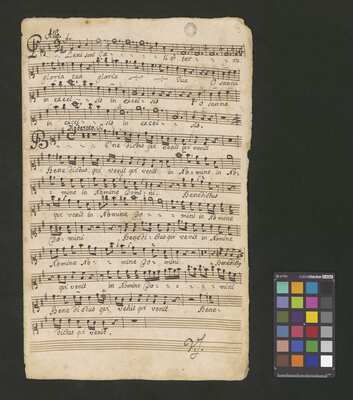 Allo
Pleni sunt Cæ - - - li et ter - ra
gloria tua gloria - - - tua O sanna
in excel - sis in excel - sis O sanna
in excel - sis in excel - - - sis.
Moderato
Bene dictus qui venit qui venit
Bene dictus qui venit qui venit in No - mine in No -
mine in Nomine Domini Benedictus
qui venit in Nomine Do - - - mini in Nomine
Domini Bene dictus qui venit in Nomine
Nomine No - mine Do - - mini Benedictus
qui venit in Nomine Do - - - - mini
Bene dictus qui venit qui venit Bene -
dictus qui venit.